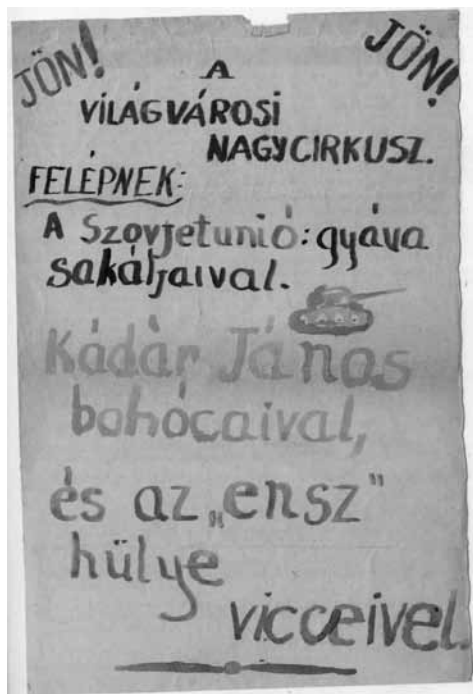 JÖN! JÖN!
A
VILÁGVÁROSI
NAGYCIRKUSZ.
FELÉPNEK:
A Szovjetunió: gyáva
sakáljaival.
Kádár János
bohócaival,
és az „ensz”
hülye
vicceivel.